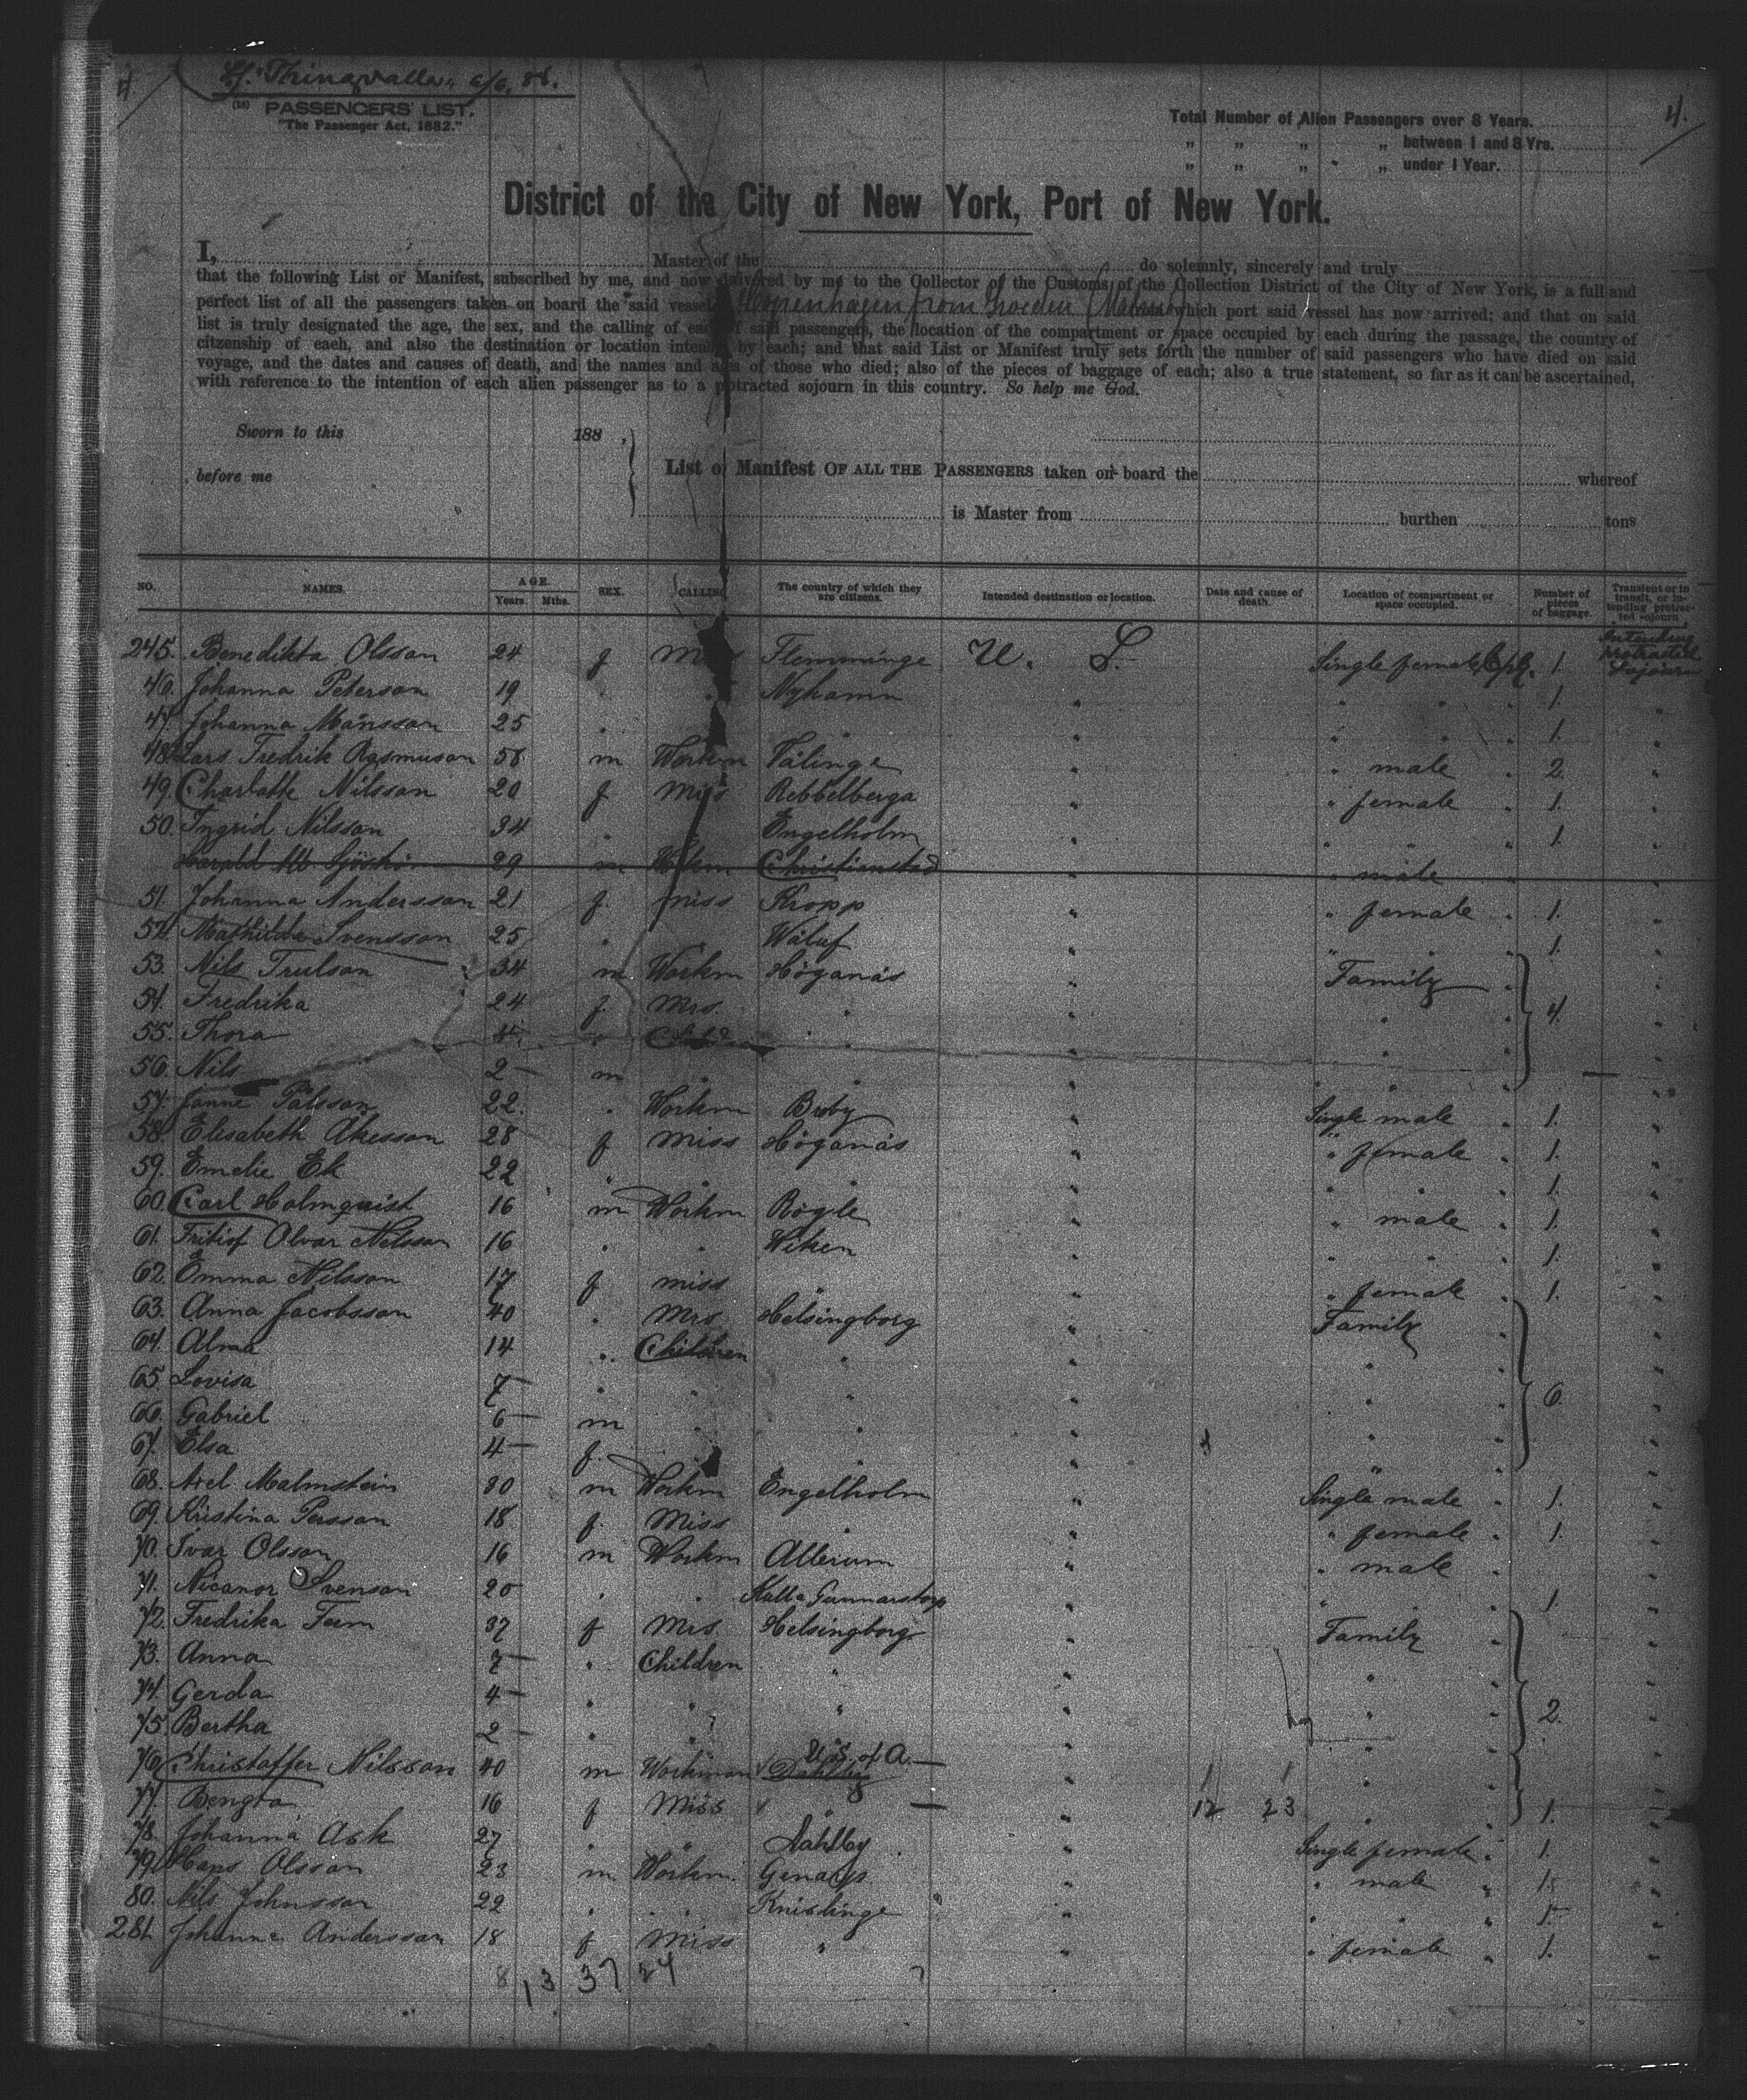 4
S/S. "Thingvalla" 6/6. 88.
(18) PASSENGERS' LIST.
"The Passenger Act, 1882."
4.
Total Number of Alien Passengers over 8 Years.
" " " " between 1 and 8 Yrs.
" " " " under 1 Year.
District of the City of New York, Port of New York.
I, Master of the do solemnly, sincerely and truly
that the following List or Manifest, subscribed by me, and now delivered by me to the Collector of the Customs of the Collection District of the City of New York, is a full and
perfect list of all the passengers taken on board the said vessel Copenhagen from Sweden which port said vessel has now arrived; and that on said
list is truly designated the age, the sex, and the calling of each of said passengers, the location of the compartment or space occupied by each during the passage, the country of
citzenship of each, and also the destination or location intended by each; and that said List or Manifest truly sets forth the number of said passengers who have died on said
voyage, and the dates and causes of death, and the names and ages of those who died; also of the pieces of baggage of each; also a true statement, so far as it can be ascertained,
with reference to the intention of each alien passenger as to a protracted sojourn in this country. So help me God.
Sworn to this 188 .
before me
List or Manifest OF ALL THE PASSENGERS taken on board the whereof
is Master from burthen tons
NO. NAMES. AGE. Years. Mths. SEX. CALLING The country of which they are citizens. Intended destination or location. Date and cause of death. Location of compartment or space occupied. Number of pieces of baggage. Transient or in transit, or intending protracted sojourn
245. Benedikta Olsson 24 f Miss Flemminge U. S. Single female Cpt. 1. Intending protracted Sojourn
46. Johanna Peterson 19 " " Nyhamn " " " " 1. "
47. Johanna Månsson 25 " " " " " " 1. "
48. Lars Fredrik Rasmuson 58 m Workm Välinge " " male " 2. "
49. Charlotte Nilsson 20 f Miss Rebbelberga " " female " 1. "
50. Ingrid Nilsson 34 " " Engelholm " " " " 1. "
Harald 29 m Workm Christianstad " " male " "
51. Johanna Andersson 21 f. miss Kropp " " female " 1. "
52. Mathilda Svensson 25 " " Wäluf " " " " 1. "
53. Nils Trulson 34 m Workm Höganäs " Family " "
54. Fredrika 24 f. Mrs. " " " " 4. "
55. Thora 4 " Children " " " " "
56. Nils 2 — m " " " " " — "
57. Janne Pålsson 22. " Workm Broby " Single male " 1. "
58. Elisabeth Åkesson 28 f Miss Höganäs " " female " 1. "
59. Emelie Ek 22 " " " " " " " 1. "
60. Carl Holmquist 16 m Workm Rögle " " male " 1. "
61. Fritiof Olvar Nilsson 16 " " Wiken " " " " 1. "
62. Emma Nilsson 17 f miss " " " female " 1. "
63. Anna Jacobsson 40 " Mrs Helsingborg " Family " "
64. Alma 14 " Children " " " " "
65. Lovisa 7 — " " " " " " 6. "
66. Gabriel 6 — m " " " " " "
67. Elsa 4 — f. " " " " " "
68. Axel Malmstein 30 m Workm Engelholm " Single male " 1. "
69. Kristina Persson 18 f. Miss " " " female " 1. "
70. Ivar Olsson 16 m Workm Allerum " " male "
71. Nicanor Svenson 20 " " Kulla Gunnarstorp " " " " 1. "
72. Fredrika Fern 37 f Mrs. Helsingborg " Family " "
73. Anna 7 — " Children " " " " "
74. Gerda 4 — " " " " " " "
75. Bertha 2 — " " " " " " 2. "
76. Christoffer Nilsson 40 m Workman U.S. of A. — Dahlby " " " "
77. Bengta 16 f Miss " — " 12 23 " " 1. "
78. Johanna Ask 27 " " Dahlby " Single female " 1. "
79. Hans Olsson 23 m. Workm. Genarps " " male " 1. "
80. Nils Johnsson 22 " " Knislinge " " " " 1. "
281. Johanna Andersson 18 f Miss " " " female " 1. "
8 13 37 24